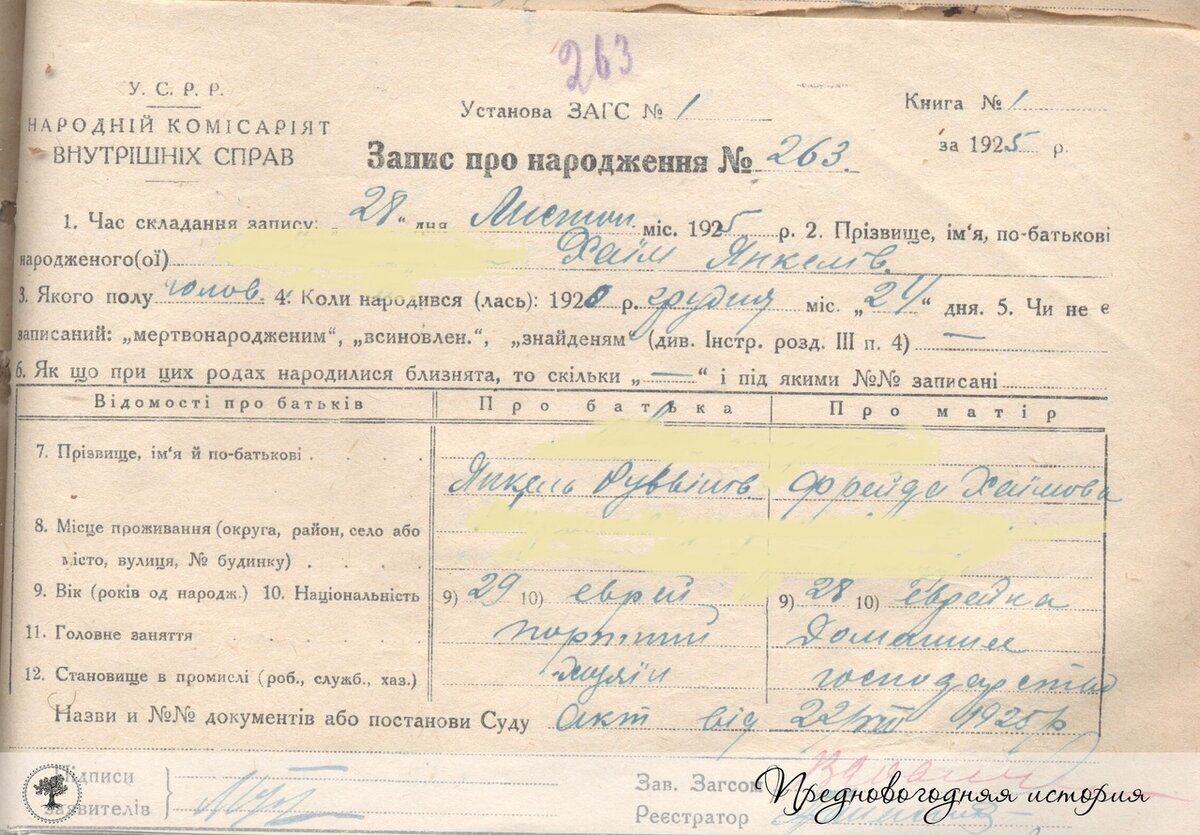 263
У. С. Р. Р.
НАРОДНІЙ КОМІСАРІЯТ
ВНУТРІШНІХ СПРАВ
Установа ЗАГС № 1
Книга № 1
за 1925 р.
Запис про народження № 263.
1. Час складання запису: „28“ дня Листоп. міс. 1925 р. 2. Прізвище, ім'я, по-батькові
народженого(ої) Хаїм Янкелів.
3. Якого полу чолов. 4. Коли народився (лась): 1920 р. грудня міс. „24“ дня. 5. Чи не є
записаний: „мертвонародженим“, „всиновлен.“, „знайденям“ (див. Інстр. розд. III п. 4) —
6. Як що при цих родах народилися близнята, то скільки „—“ і під якими №№ записані
Відомості про батьків Про батька Про матір
7. Прізвище, ім'я й по-батькові
Янкель Фрейда Хаїмова
8. Місце проживання (округа, район, село або
місто, вулиця, № будинку)
9. Вік (років од народж.) 10. Національність 9) 29 10) еврей 9) 28 10) Еврейка
11. Головне заняття Домашнє
12. Становище в промислі (роб., служб., хаз.) господарство
Назви и №№ документів або постанови Суду Акт від 1925 р
Підписи
заявителів
Зав. Загсом
Реєстратор
Предновогодняя история